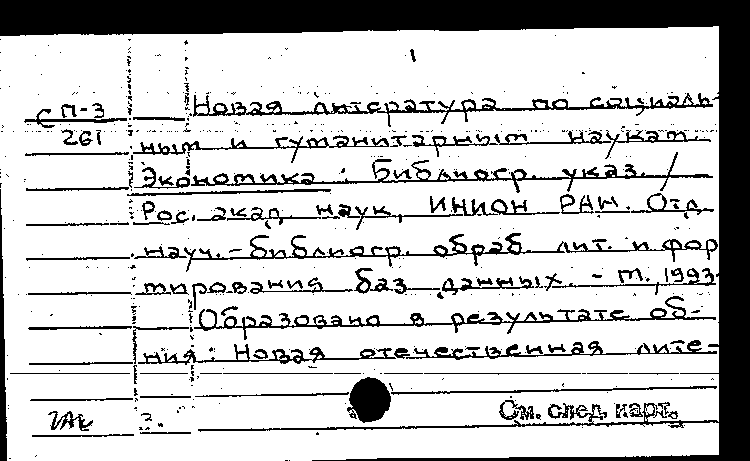 1
С П-3
261
Новая литература по социаль-
ным и гуманитарным наукам.
Экономика : Библиогр. указ. /
Рос. акад. наук, ИНИОН РАН. Отд.
науч.-библиогр. обраб. лит. и фор
мирования баз данных. - М., 1993-
Образовано в результате об-
ния: Новая отечественная лите-
З.
См. след. карт.